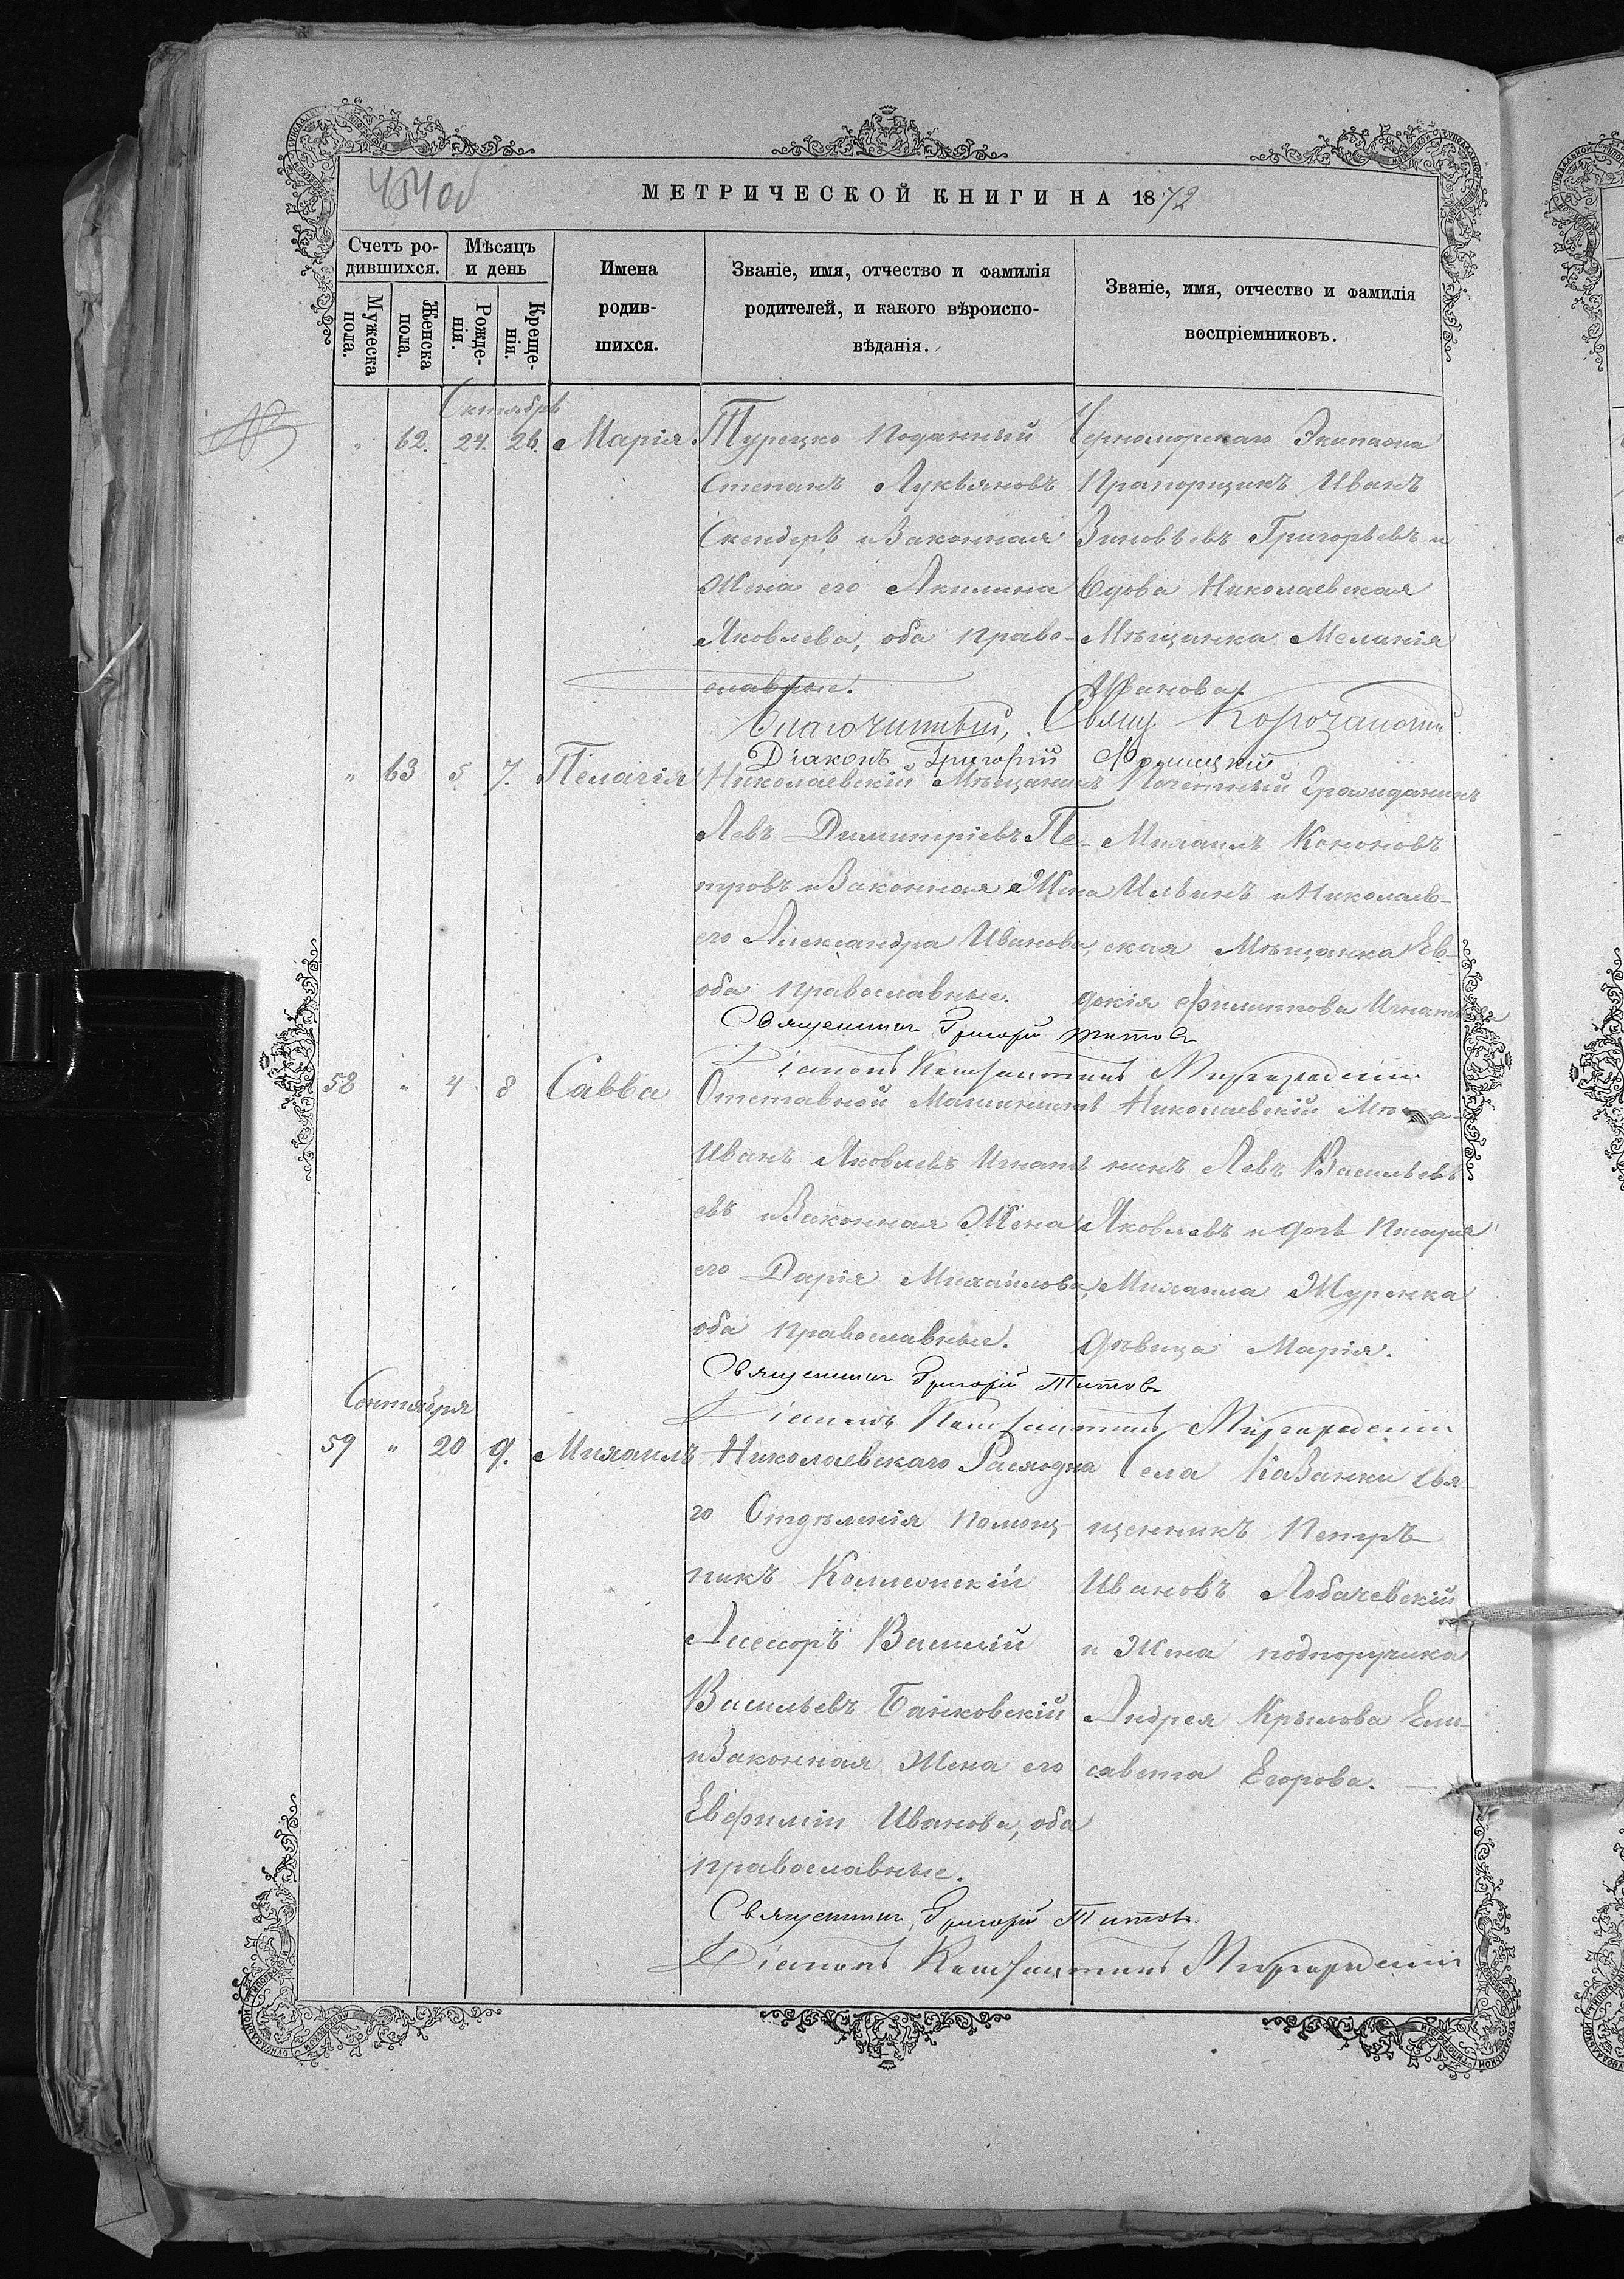 МЕТРИЧЕСКОЙ КНИГИ НА 1872
Счетъ родившихся.
Мужеска пола.
Женска пола.
Мѣсяцъ и день
Рожденія.
Крещенія.
Имена родившихся.
Званіе, имя, отчество и фамилія
родителей, и какого вѣроиспо-
вѣданія.
Званіе, имя, отчество и фамилія
воспріемниковъ.
Октябрь
" 62. 24. 26. Марія.
Турецко Поданный
Степанъ Лукьяновъ
Скендеръ и Законная
Жена его Акилина
Яковлева, оба право-
славные.
Черноморскаго Экипажа
Прапорщикъ Иванъ
Зиновьевъ Григорьевъ и
Вдова Николаевская
Мѣщанка Меланія
Иванова.
Благочинный, Свящ.
Діаконъ Григорій
" 63 5 7. Пелагія
Николаевскій Мѣщанинъ
Левъ Димитріевъ Пе-
тровъ и Законная Жена
его Александра Иванова,
оба православные.
Почетный Гражданинъ
Михаилъ Кононовъ
Ильинъ и Николаев-
ская Мѣщанка Ев-
докія Филиппова
Священникъ Григорій Титовъ
Діаконъ Константинъ Миргородскій
58 " 4 8 Савва
Отставной Машинистъ
Иванъ Яковлевъ Игнать
евъ и Законная Жена
его Дарія Михайлова,
оба православные.
Николаевскій
нинъ Левъ Васильевъ
Яковлевъ и дочь Писаря
Михаила Журенка
дѣвица Марія.
Священникъ Григорій Титовъ
Діаконъ Константинъ Миргородскій
Сентября
59 " 20 9. Михаилъ
Николаевскаго Расходна
го Отдѣленія помощ-
никъ Коллежскій
Ассесоръ Василій
Васильевъ Банковскій
и Законная Жена его
Евфимія Иванова, оба
православные.
Села Казанки Свя-
щенникъ Петръ
Ивановъ Лобачевскій
и Жена подпоручика
Андрея Крылова Ели-
савета Егорова.
Священникъ Григорій Титовъ.
Діаконъ Константинъ Миргородскій